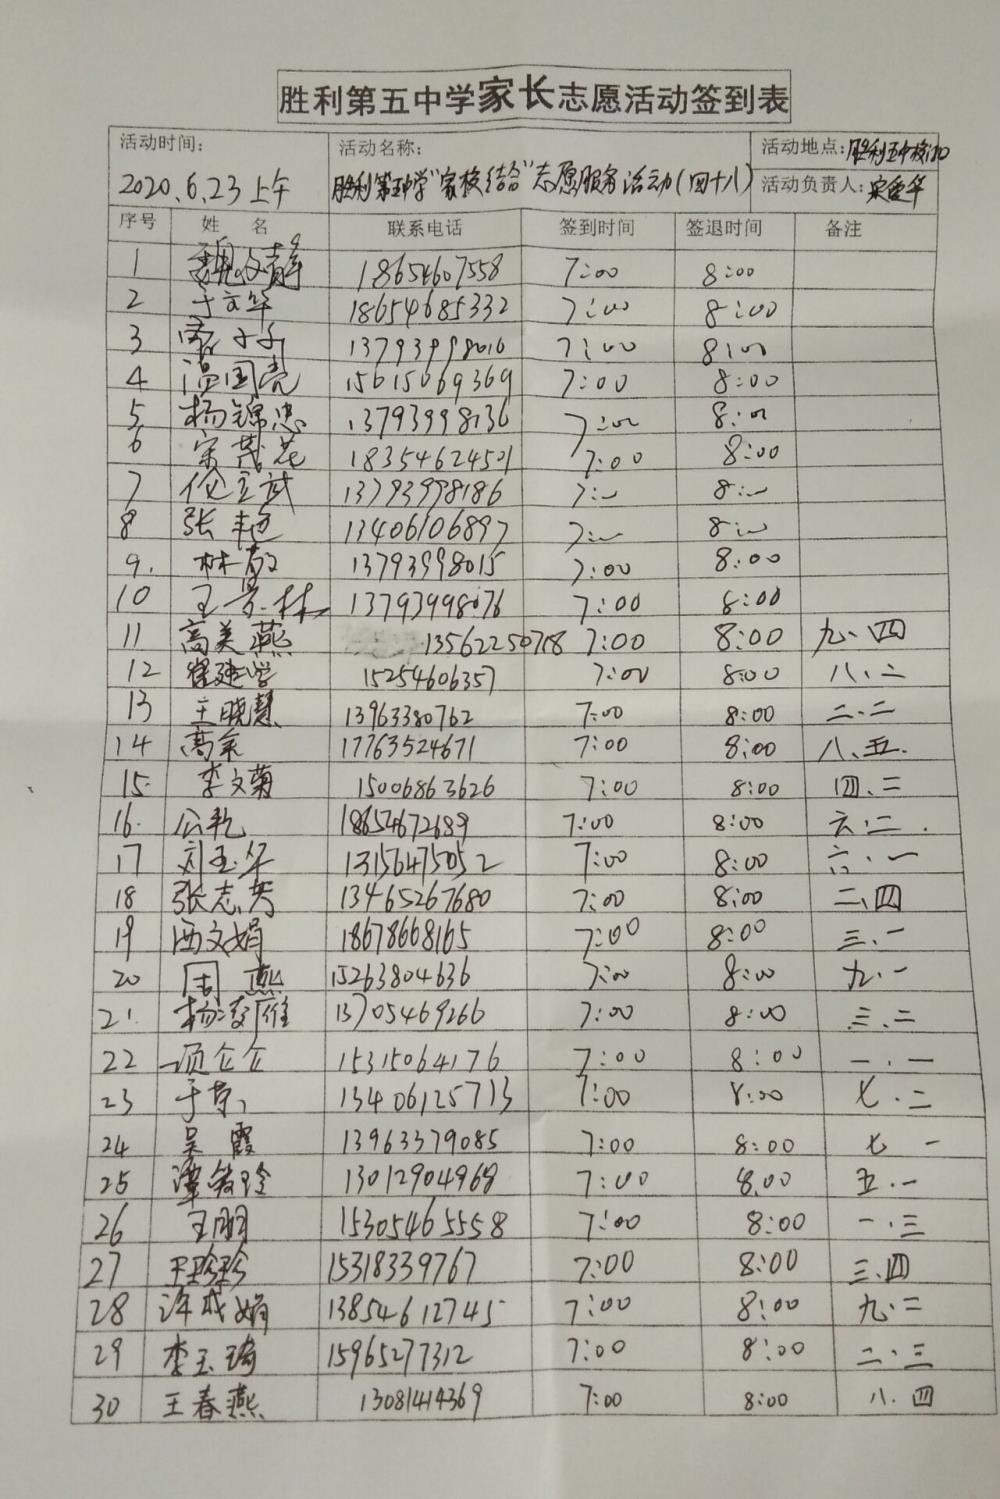 胜利第五中学家长志愿活动签到表
活动时间: 活动名称: 活动地点:胜利五中校门口
2020.6.23上午 胜利第五中学“家校结合”志愿服务活动(四十八) 活动负责人:
序号 姓 名 联系电话 签到时间 签退时间 备注
1 魏文静 18654607558 7:00 8:00
2 于文华 18654685332 7:00 8:00
3 13793998016 7:00 8:00
4 温国亮 15615069369 7:00 8:00
5 杨锦忠 13793998136 7:00 8:00
6 宋茂花 18354624501 7:00 8:00
7 任立武 13793998186 7:00 8:00
8 张艳 13406106897 7:00 8:00
9. 林敬 13793998015 7:00 8:00
10 王景林 13793998076 7:00 8:00
11 高美燕 13562250718 7:00 8:00 九、四
12 崔建学 15254606357 7:00 8:00 八、二
13 王晓慧 13963380762 7:00 8:00 二、二
14 高余 17763524671 7:00 8:00 八、五.
15. 李文菊 15006863626 7:00 8:00 四、二
16. 公乾 18654672689 7:00 8:00 六、二.
17 刘玉华 13156475052 7:00 8:00 六、一
18 张志芳 13465267680 7:00 8:00 二、四
19 西文娟 18678668165 7:00 8:00 三、一
20 周燕 15263804636 7:00 8:00 九、一
21. 杨凌雁 13705469266 7:00 8:00 三、二
22 项仝仝 15315064176 7:00 8:00 一.一
23 于荣 13406125713 7:00 8:00 七.二
24 吴霞 13963379085 7:00 8:00 七 一
25 谭敏玲 13012904968 7:00 8.00 五.一
26 王朋 15305465558 7:00 8:00 一、三
27 王珍珍 15318339767 7:00 8:00 三、四
28 许成娟 13854612745 7:00 8:00 九、二
29 李玉琦 15965277312 7:00 8:00 二、三
30 王春燕 13081414369 7:00 8:00 八.四